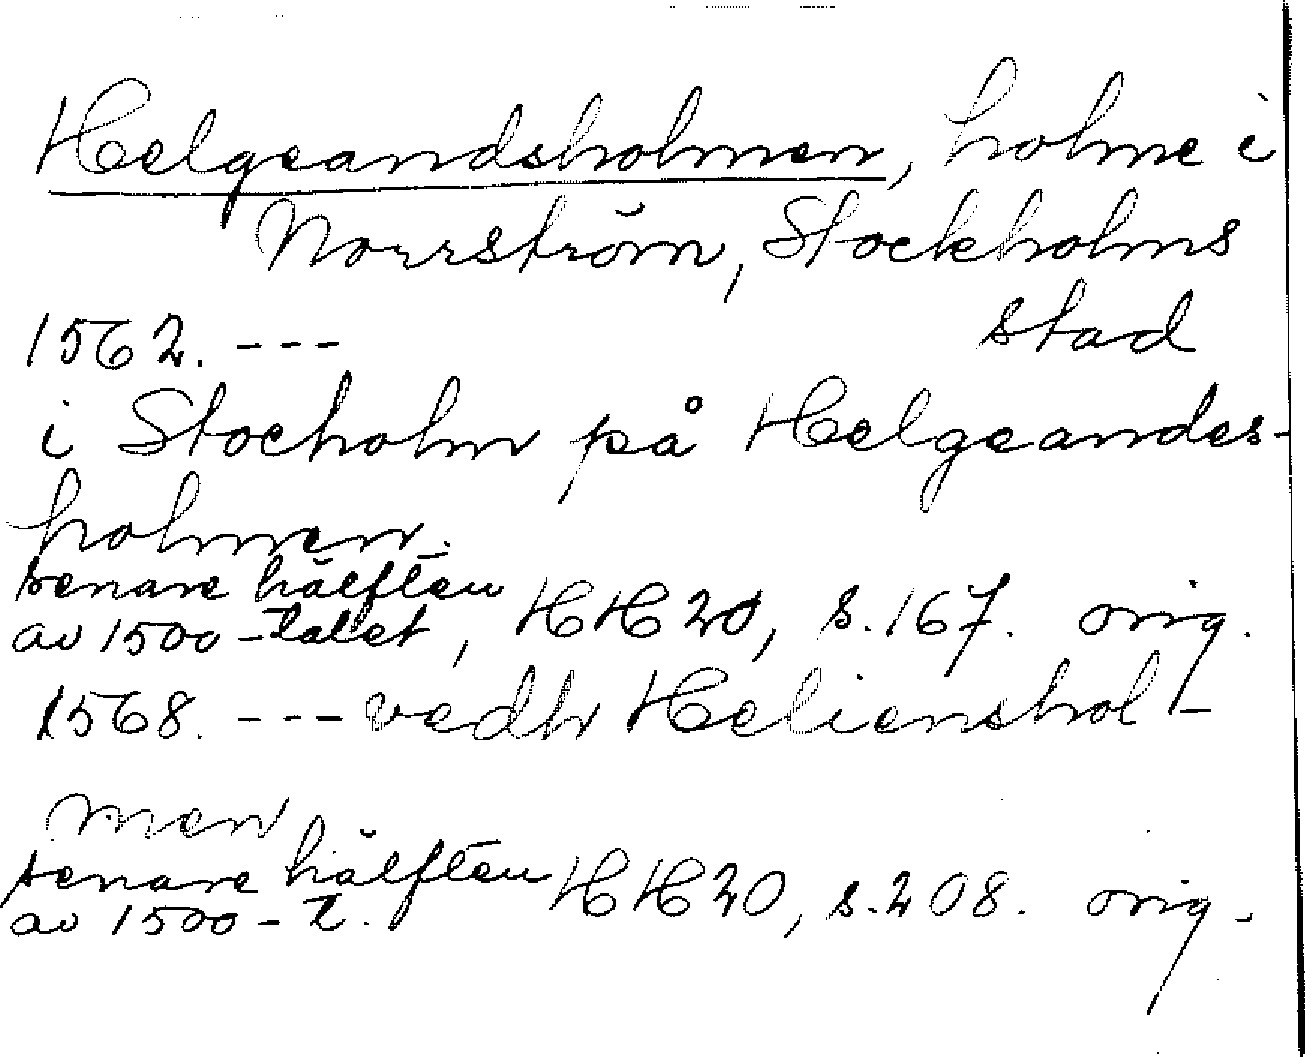 Helgeandsholmen, holme i
Norrström, Stockholms
stad
1562. ---
i Stocholm på Helgeandes-
holmen.
senare hälften
av 1500-talet, HH 20, s. 167. orig.
1568. --- vedh Helienshol-
men
senare hälften
av 1500-t. HH 20, s. 208. orig.